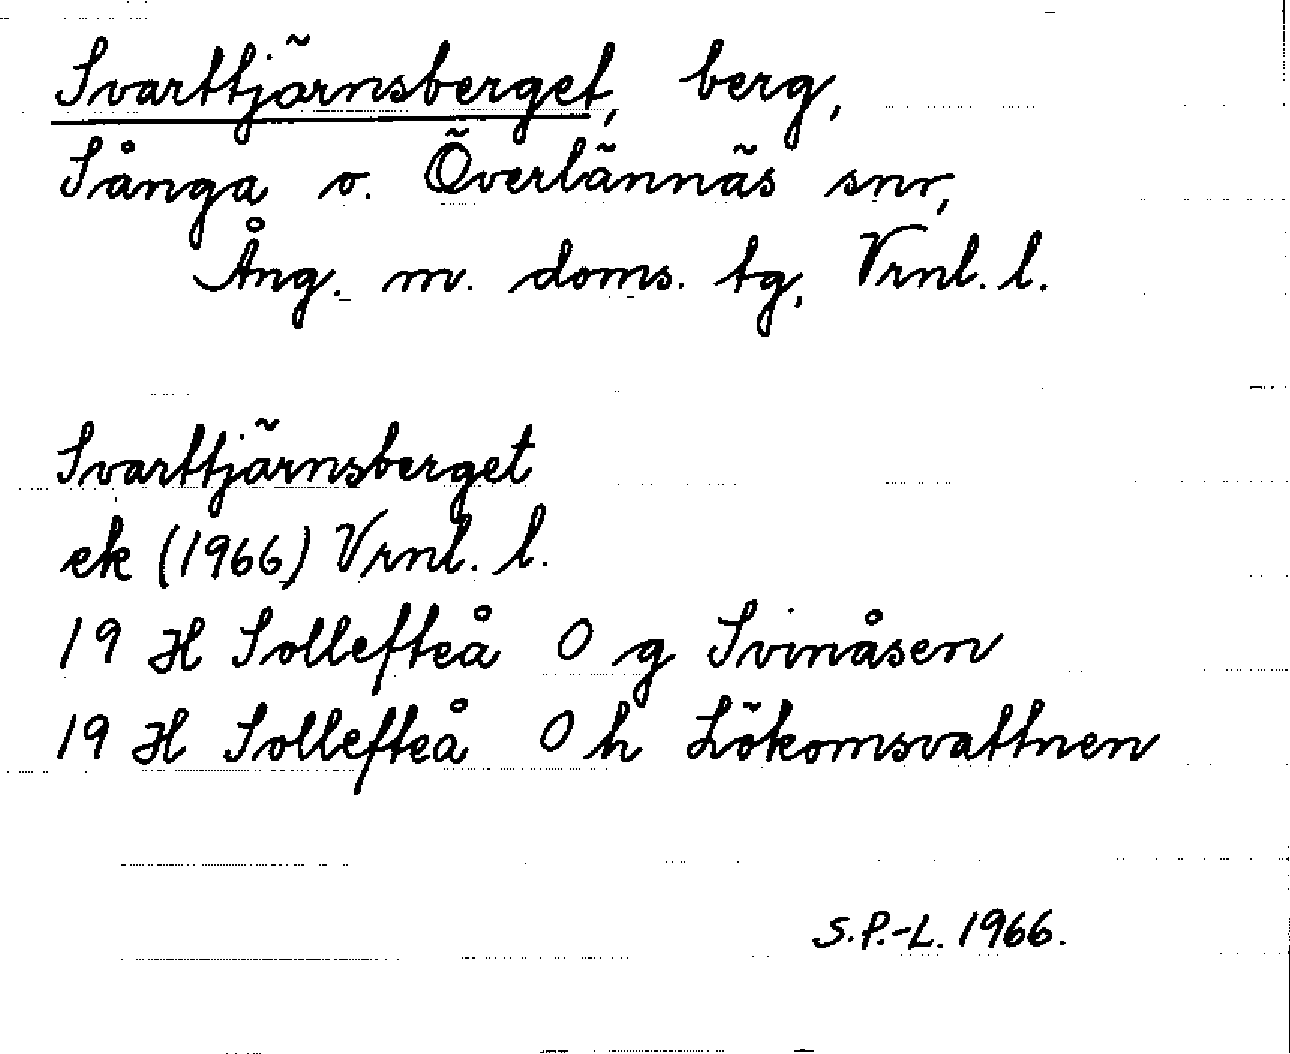 Svarttjärnsberget, berg,
Sånga o. Överlännäs snr,
Ång. m. doms. tg, Vrnl. l.
Svarttjärnsberget
ek (1966) Vrnl. l.
19 H Sollefteå 0 g Svinåsen
19 H Sollefteå 0 h Lökomsvattnen
S.P.-L. 1966.